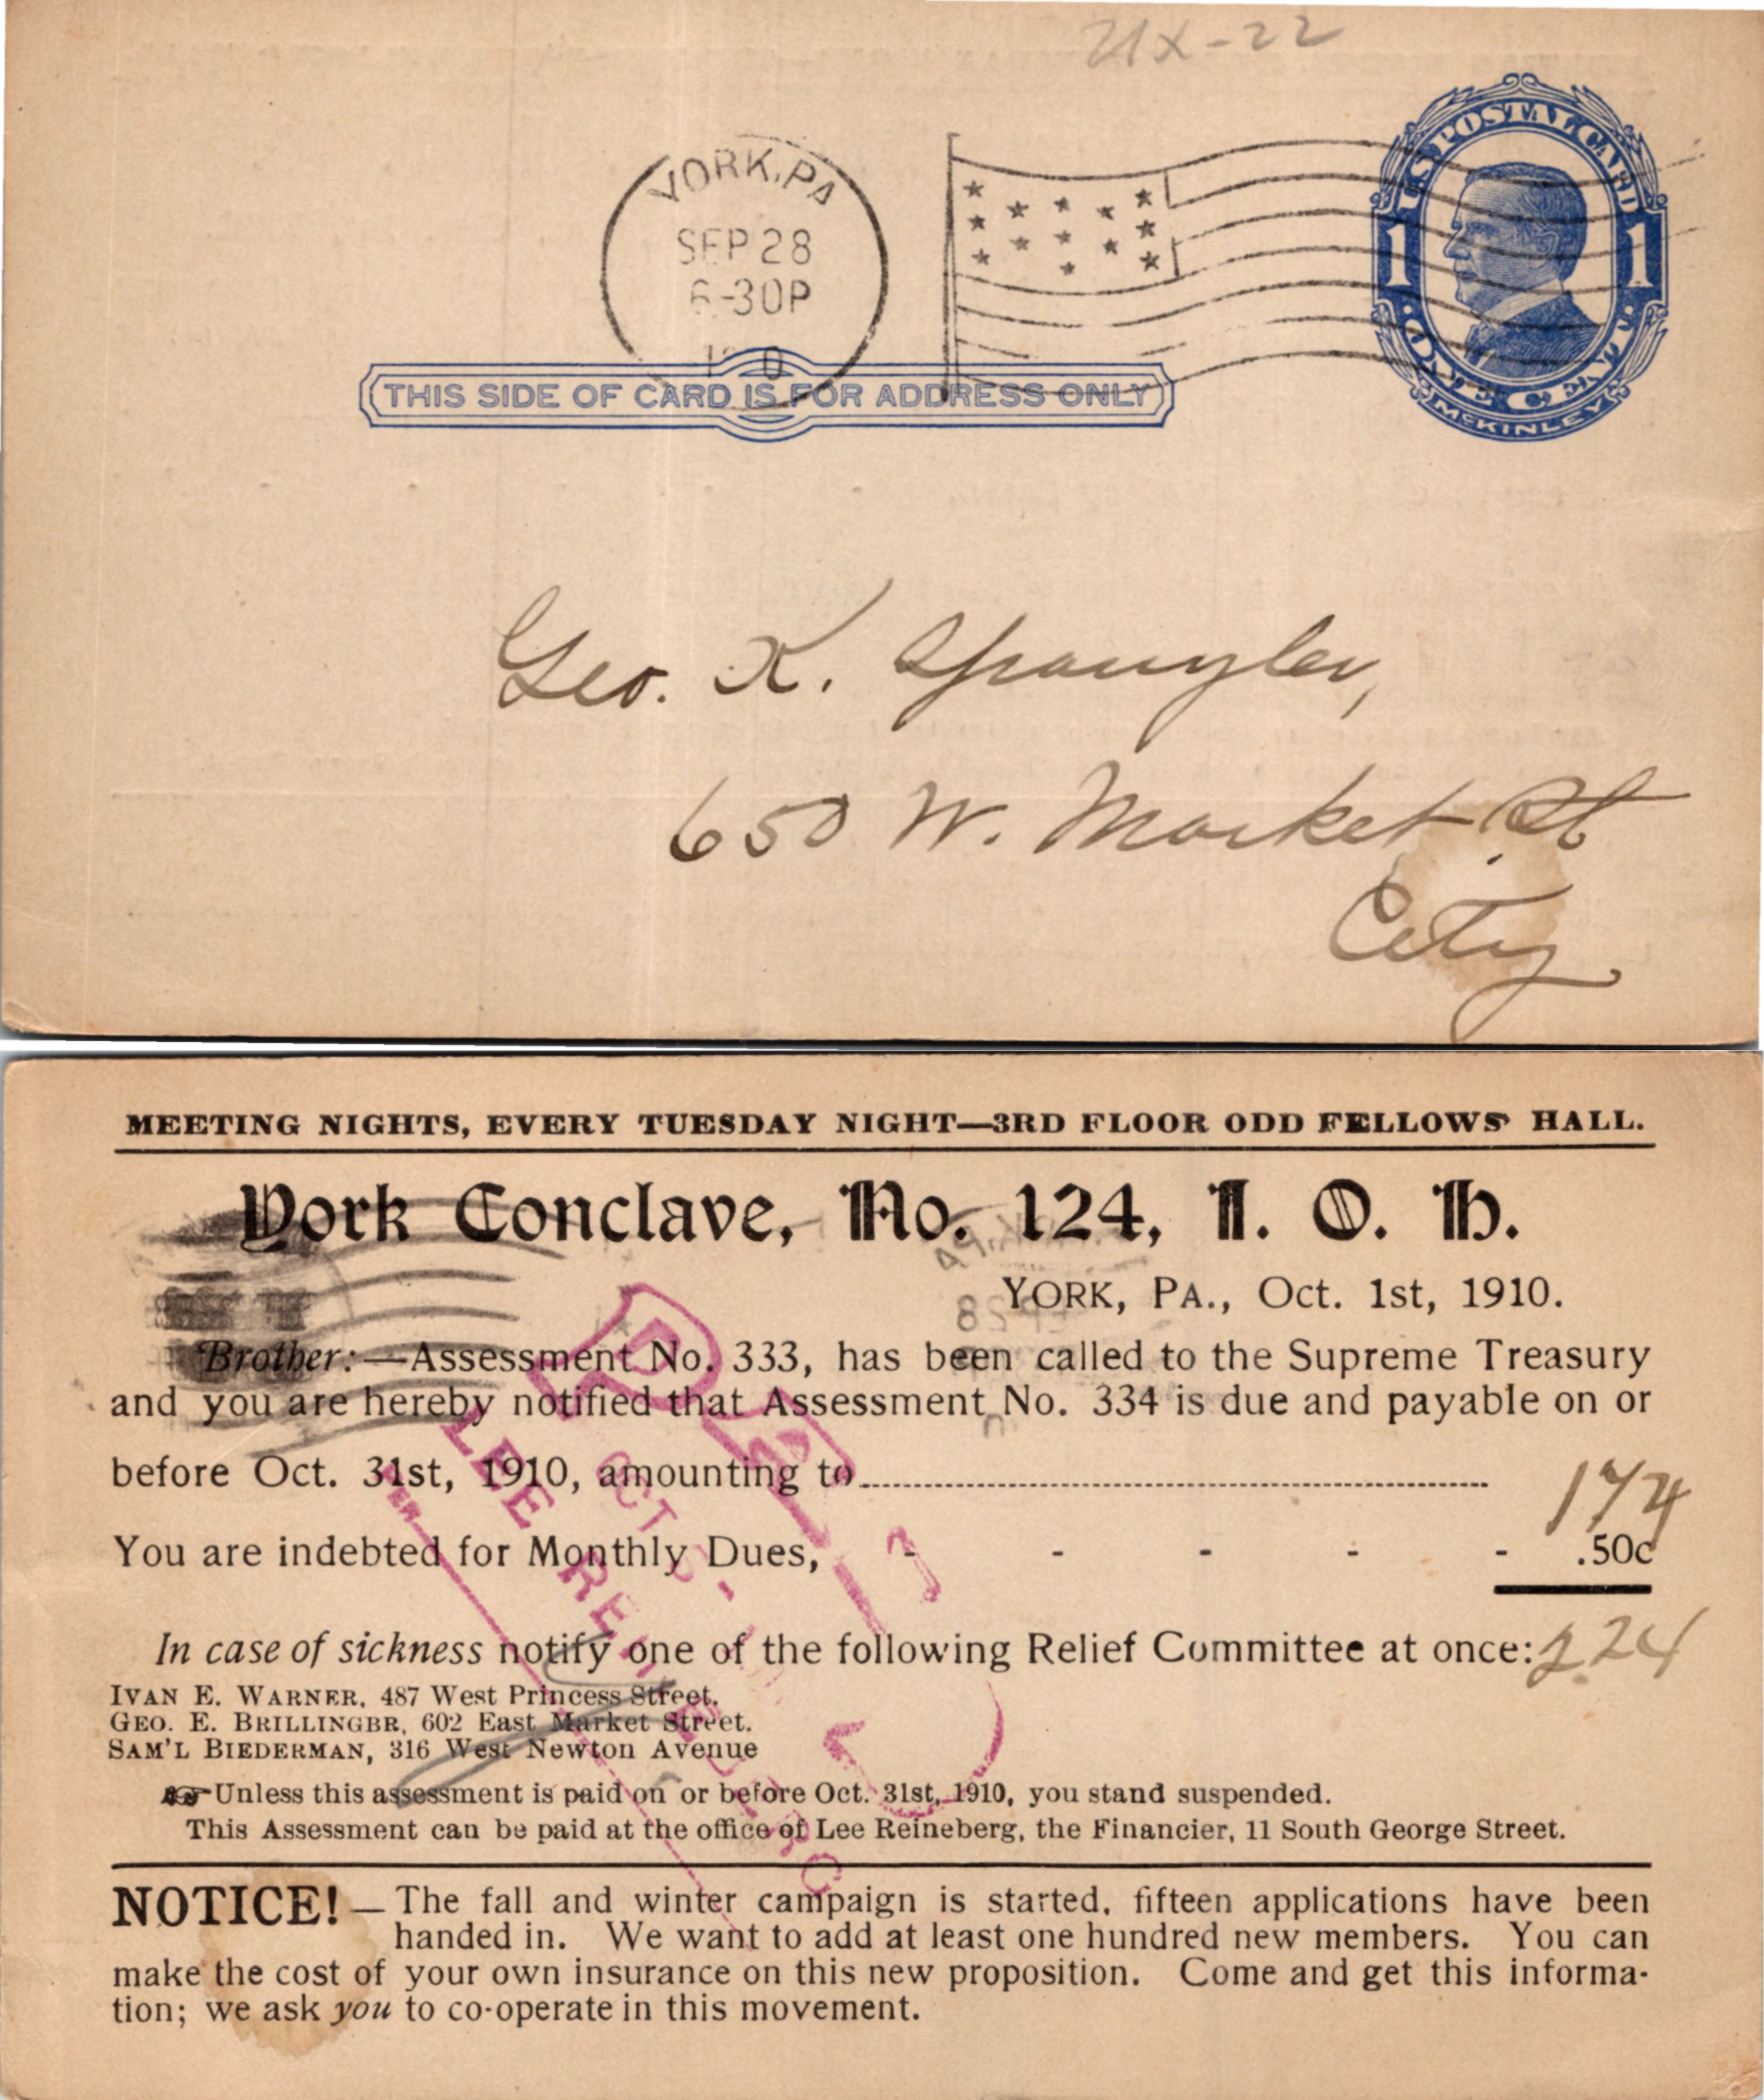 UX-22
U.S. POSTAL CARD
1 1
ONE CENT
MCKINLEY
YORK, PA
SEP 28
6-30P
THIS SIDE OF CARD IS FOR ADDRESS ONLY
Geo. K. Spangler,
650 W. Market St
City
MEETING NIGHTS, EVERY TUESDAY NIGHT—3RD FLOOR ODD FELLOWS' HALL.
York Conclave, No. 124, I. O. H.
YORK, PA., Oct. 1st, 1910.
Brother:—Assessment No. 333, has been called to the Supreme Treasury
and you are hereby notified that Assessment No. 334 is due and payable on or
before Oct. 31st, 1910, amounting to 174
You are indebted for Monthly Dues, - - - - - .50c
In case of sickness notify one of the following Relief Committee at once: 2.24
IVAN E. WARNER, 487 West Princess Street.
GEO. E. BRILLINGBR, 602 East Market Street.
SAM'L BIEDERMAN, 316 West Newton Avenue
Unless this assessment is paid on or before Oct. 31st, 1910, you stand suspended.
This Assessment can be paid at the office of Lee Reineberg, the Financier, 11 South George Street.
NOTICE!—The fall and winter campaign is started, fifteen applications have been
handed in. We want to add at least one hundred new members. You can
make the cost of your own insurance on this new proposition. Come and get this informa-
tion; we ask you to co-operate in this movement.
OCT
LEE REINEBERG
PER